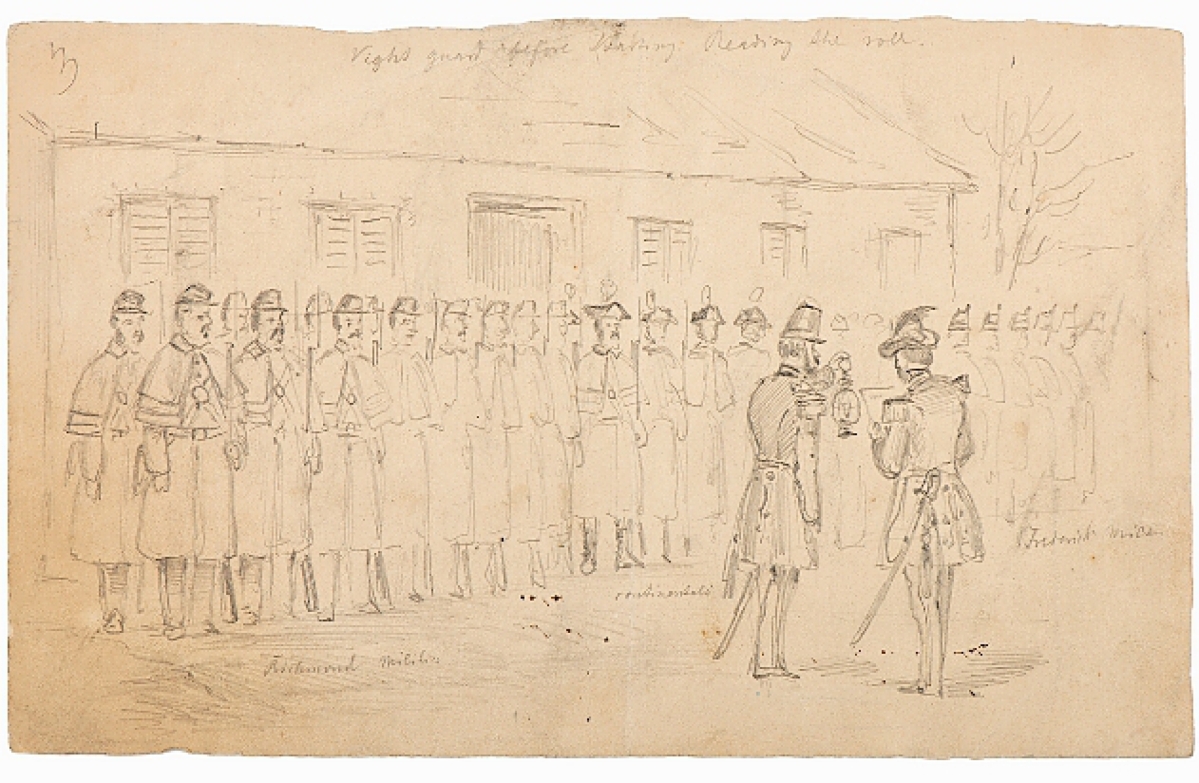 Night guard before Starting. Reading the roll.
continentals
Frederick
Richmond Militia